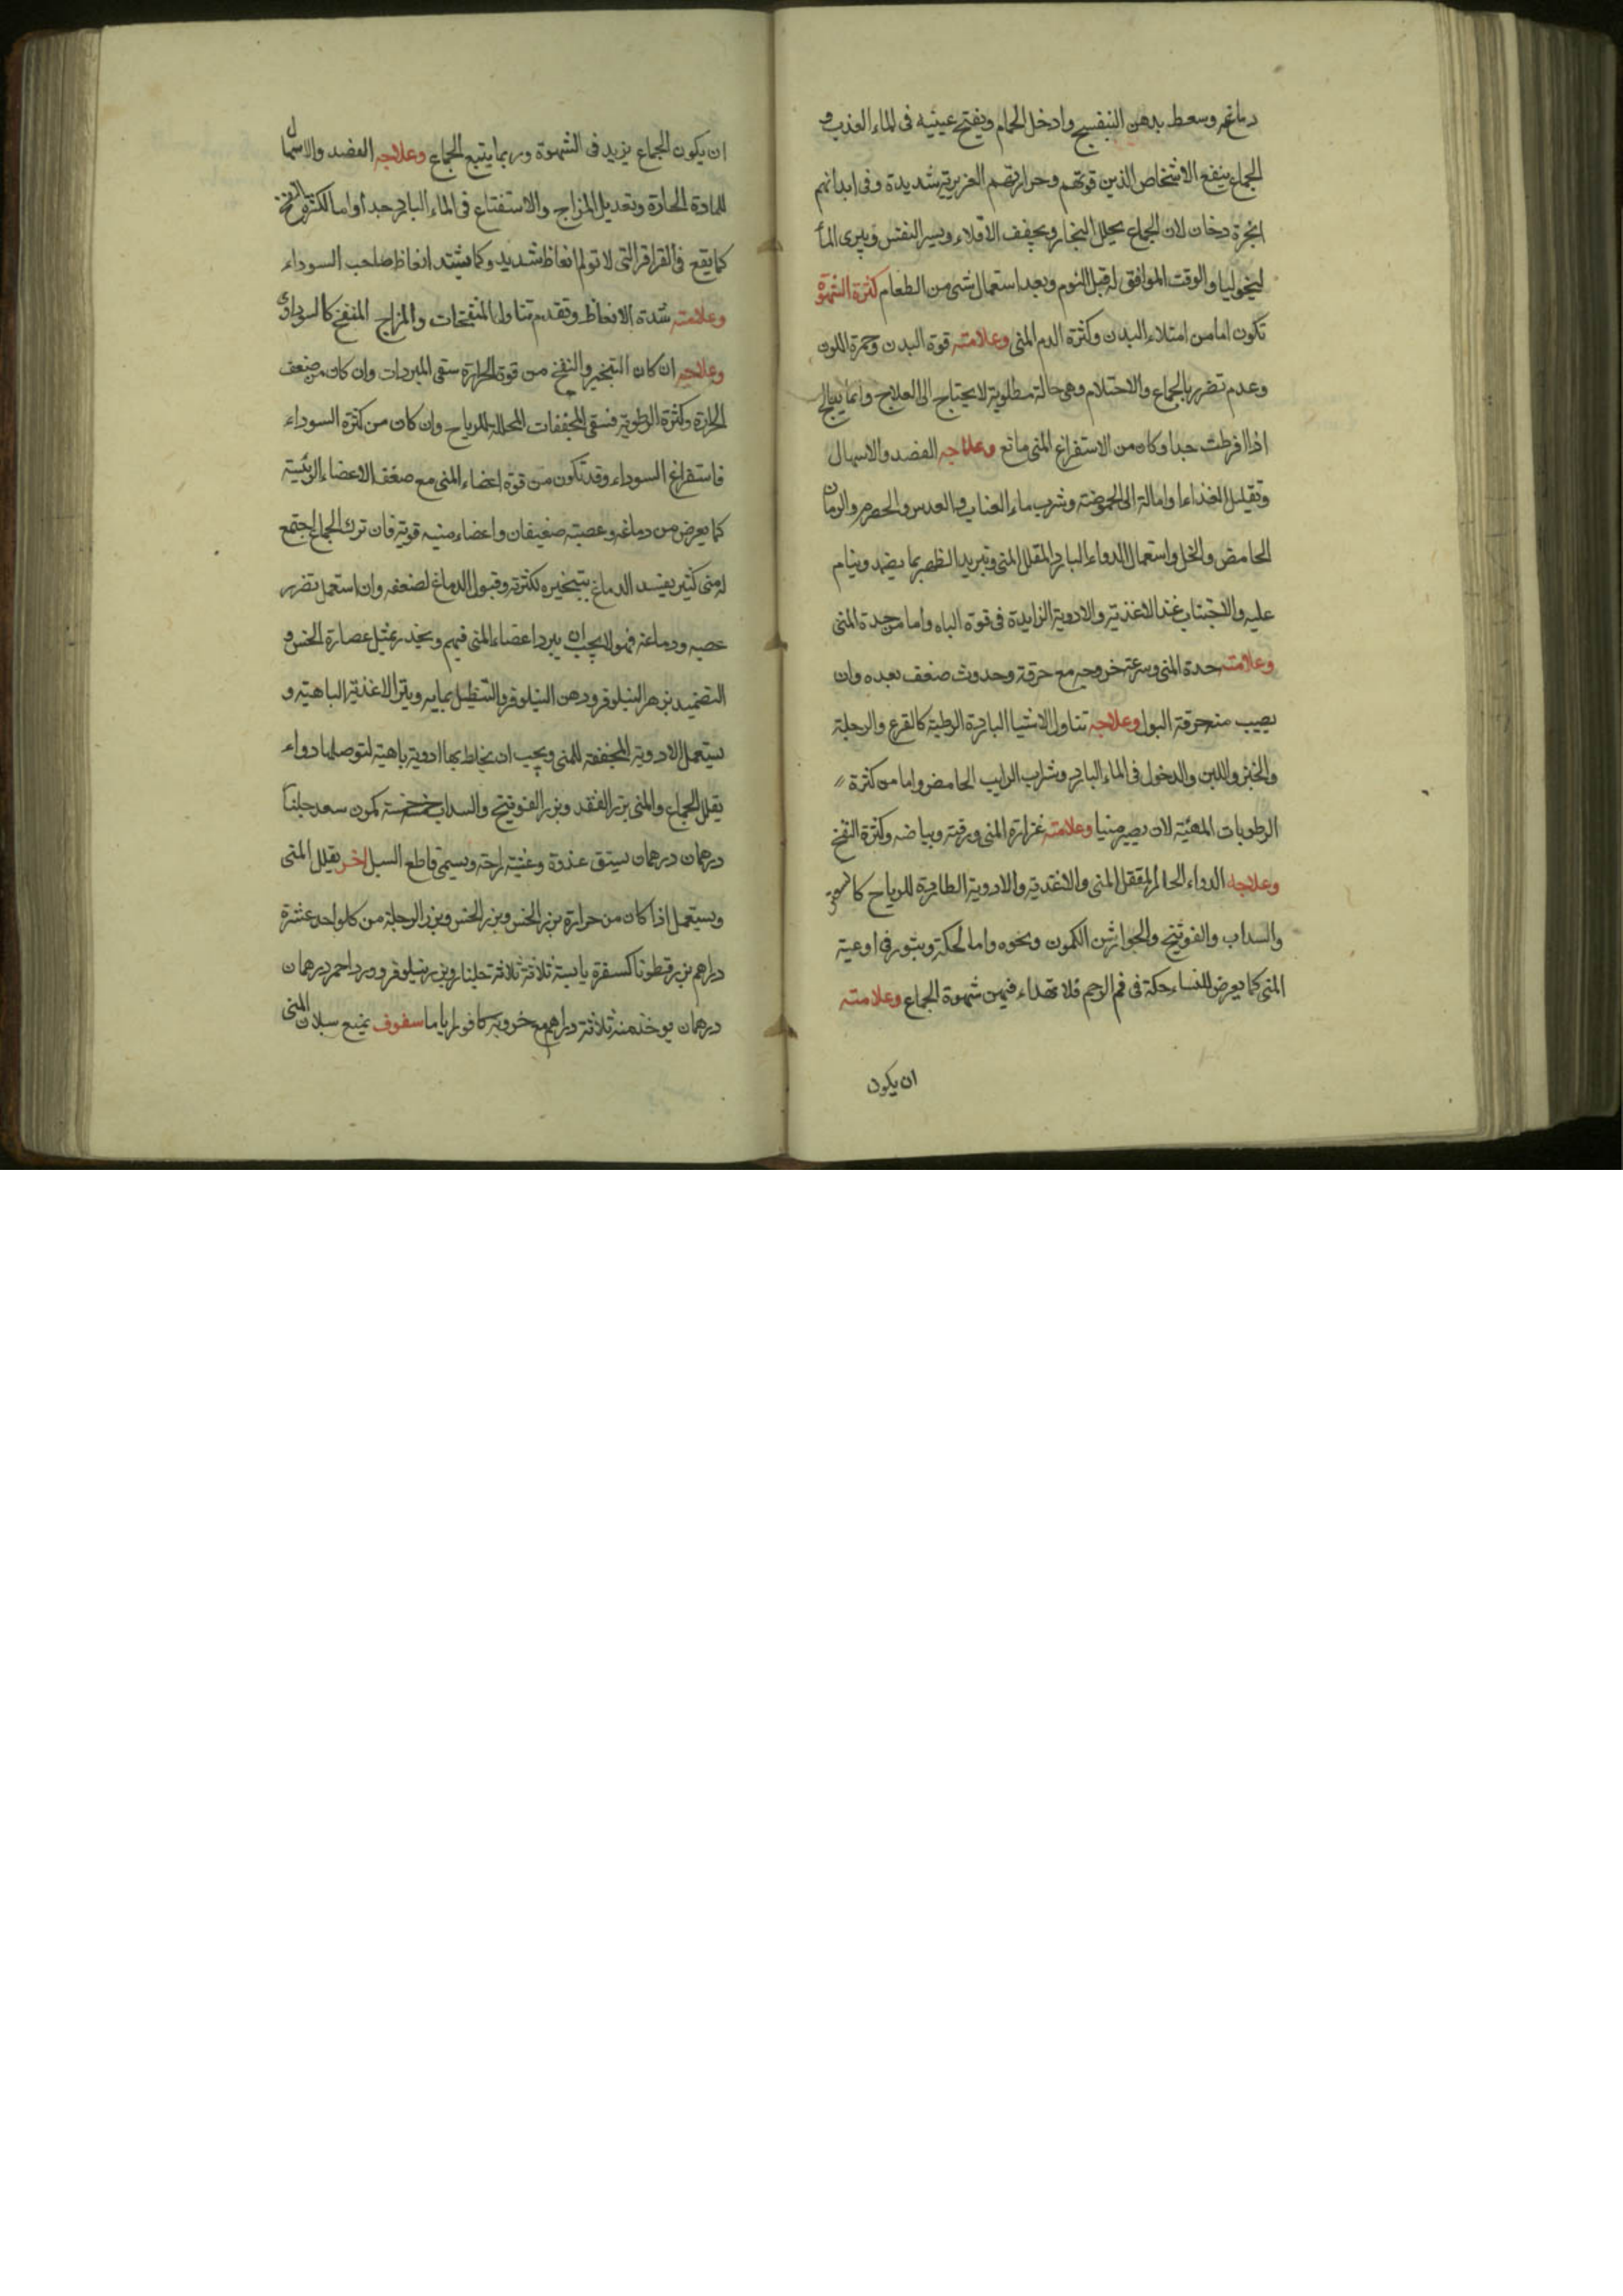 دماغه وسعط بدهن البنفسج وادخل الحمام ويفتح عينيه فى الماء العذب و
الجماع ينفع الاشخاص الذين قوتهم وحرارتهم الغريزية شديدة وفى ابدانهم
ابخرة دخان لان الجماع يحلل البخار ويجفف الاقلاء ويسر النفس ويبرى المأ
ليخوليا والوقت الموافق له قبل النوم وبعد استعمال شى من الطعام كثرة الشهوة
تكون اما من امتلاء البدن وكثرة الدم المنى وعلامته قوة البدن وحمرة اللون
وعدم تضرر بالجماع والاحتلام وهى حالة مطلوبة لا يحتاج الى العلاج وانما يعالج
اذا افرطت جدا وكان من الاستفراغ المنى مانع وعلاجه الفصد والاسهال
وتقليل الغذاء او امالة الى الحموضة وشرب ماء العناب و العدس والحصرم والرمان
الحامض والخل واستعمال الدواء البارد المقلل المنى وتبريد الظهر بما يضمد وينام
عليه والاجتناب عند الاغذية والادوية الزايدة فى قوة الباه واما من حدة المنى
وعلامته حدة المنى وسرعة خروجه مع حرقة وحدوث ضعف بعده وان
يصيب منه حرقة البول وعلاجه تناول الاشيا الباردة الرطبة كالقرع والرجلة
والخبز واللبن والدخول فى الماء البارد وشراب الرايب الحامض واما من كثرة
الرطوبات المهيئة لان يصير منيا وعلامته غزارة المنى ورقته وبياضه وكثرة النفخ
وعلاجه الدواء الحار المقلل المنى والاغذية والادوية الطاردة للرياح
والسداب والفوتنج والجوارشن الكمون ونحوه واما لحكة وبثور فى اوعية
المنى كما يعرض للنساء حكة فى فم الرحم فلا تهداء فيهن شهوة الجماع وعلامته
ان يكون
ان يكون الجماع يزيد فى الشهوة وربما يتبع الجماع وعلاجه الفصد والاسهال
للمادة الحادة وتعديل المزاج والاستنقاع فى الماء البارد جدا واما لكثرة النفخ
كما يقع فى القراقر التى لا تولم انعاظ شديد وكما يشتد انعاظ صاحب السوداء
وعلامته شدة الانعاظ وتقدم تناول المنفخات والمزاج المنفخ كالسوداوى
وعلاجه ان كان التبخير والنفخ من قوة الحرارة سقى المبردات وان كان من ضعف
الحرارة وكثرة الرطوبة فسقى المجففات المحللة للرياح وان كان من كثرة السوداء
فاستفراغ السوداء وقد تكون من قوة اعضاء المنى مع ضعف الاعضاء الرئيسة
كما يعرض من دماغه وعصبته ضعيفان واعضاء منيه قوية فان ترك الجماع اجتمع
له منى كثير يفسد الدماغ بتبخيره لكثرته وقبول الدماغ لضعفه وان استعمل تضرر
عصبه ودماغه فهولا يجب ان يبرد اعضاء المنى فيهم ويخدر بمثل عصارة الخس و
التضميد بزهر النيلوفر ودهن النيلوفر والتنطيل بمايه ويترك الاغذية الباهية و
يستعمل الادوية المجففة للمنى ويجب ان يخلط بها ادوية باهية لتوصلها دواء
يقلل الجماع والمنى بزر الفقد وبزر الفوتنج والسداب خمسة خمسة كمون سعد جلنار
درهمان درهمان يستق غدوة وعشية لراحة ويسمى قاطع السبل اخر يقلل المنى
ويستعمل اذا كان من حرارة بزر الخس وبزر الخس وبزر الرجلة من كل واحد عشرة
دراهم بزر قطونا كسفرة يابسة ثلاثة ثلاثة جلنار وبزر نيلوفر وورد احمر درهمان
درهمان يوخذ منه ثلاثة دراهم مع خروبه كافور اياما سفوف يمنع سيلان المنى